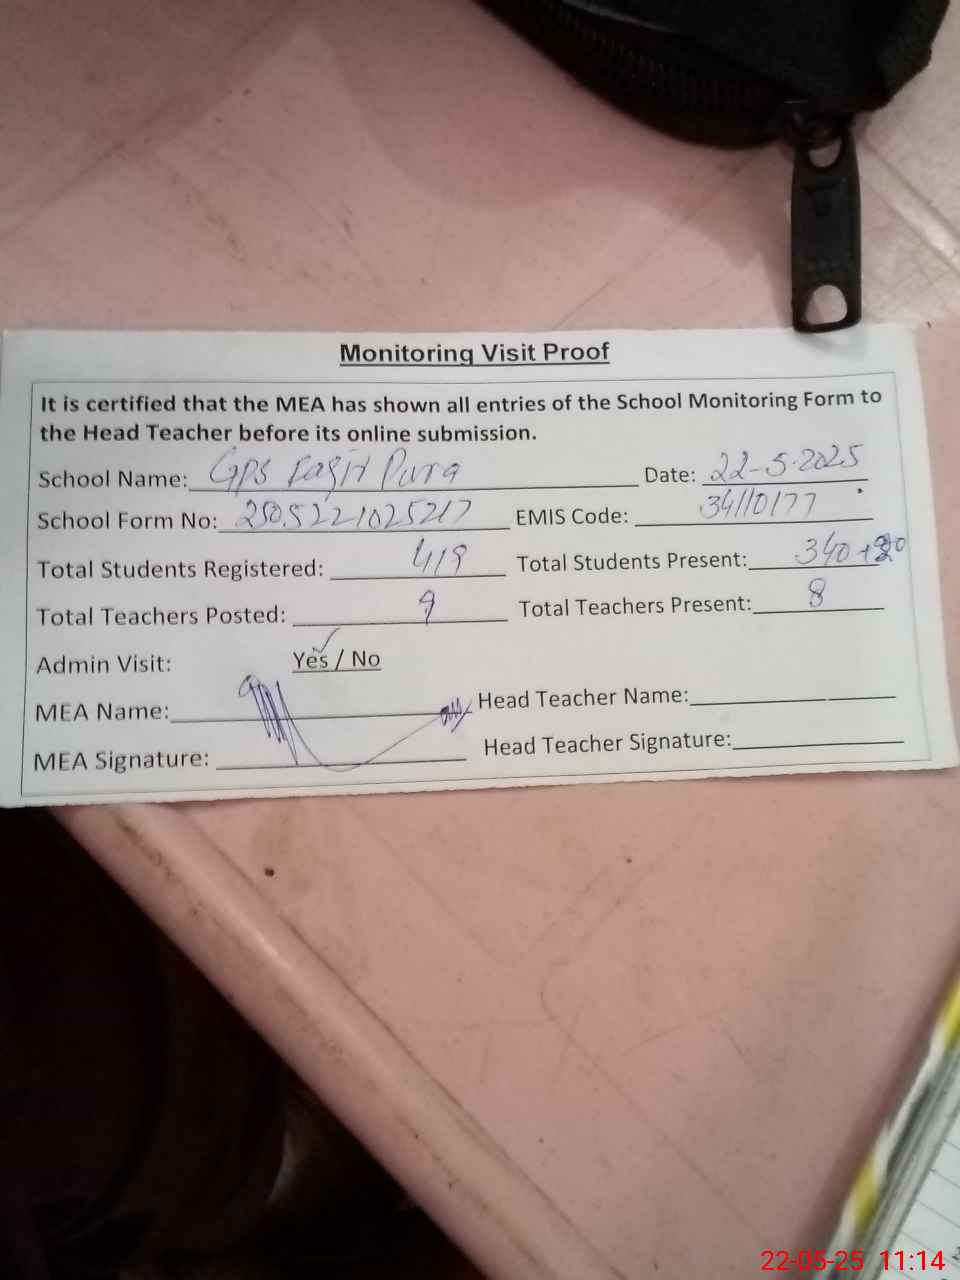 Monitoring Visit Proof
It is certified that the MEA has shown all entries of the School Monitoring Form to
the Head Teacher before its online submission.
School Name: GPS Faqir Pura Date: 22-5-2025
School Form No: 2505221025217 EMIS Code: 34110177
Total Students Registered: 419 Total Students Present: 340+20
Total Teachers Posted: 9 Total Teachers Present: 8
Admin Visit: Yes / No
MEA Name: Head Teacher Name:
MEA Signature: Head Teacher Signature:
22-05-25 11:14